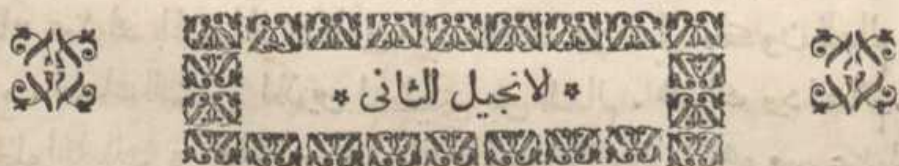 * لانجيل الثانى *